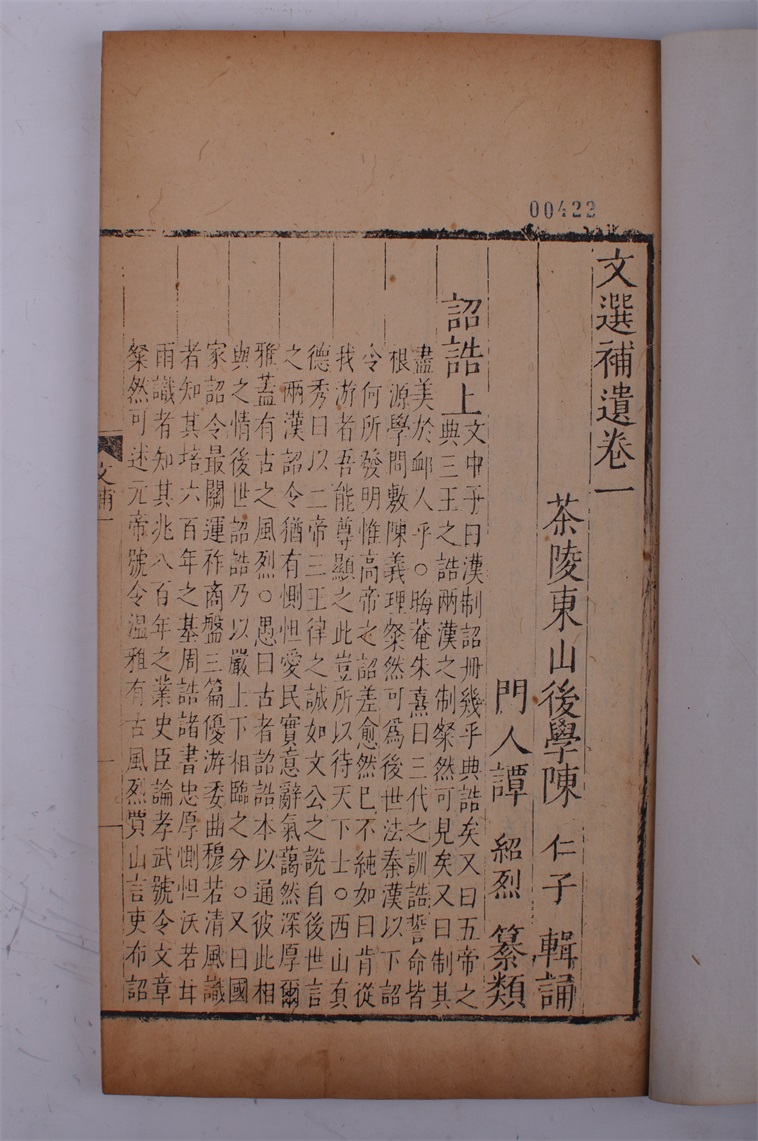 00422
文選補遺卷一
茶陵東山後學陳 仁子 輯誦
門人譚 紹烈 纂類
詔誥上
文中子曰漢制詔冊幾乎典誥矣又曰五帝之
典三王之誥兩漢之制粲然可見矣又曰制其
盡美於卹人乎○晦菴朱熹曰三代之訓誥誓命皆
根源學問敷陳義理粲然可爲後世法秦漢以下詔
令何所發明惟高帝之詔差愈然已不純如曰肯從
我游者吾能尊顯之此豈所以待天下士○西山真
德秀曰以二帝三王律之誠如文公之說自後世言
之兩漢詔令猶有惻怛愛民實意辭氣藹然深厚爾
雅蓋有古之風烈○愚曰古者詔誥本以通彼此相
與之情後世詔誥乃以嚴上下相臨之分○又曰國
家詔令最關運祚商盤三篇優游委曲穆若清風識
者知其培六百年之基周誥諸書忠厚惻怛沃若
雨識者知其兆八百年之業史臣論孝武號令文章
粲然可述元帝號令温雅有古風烈賈山言吏布詔
文補一